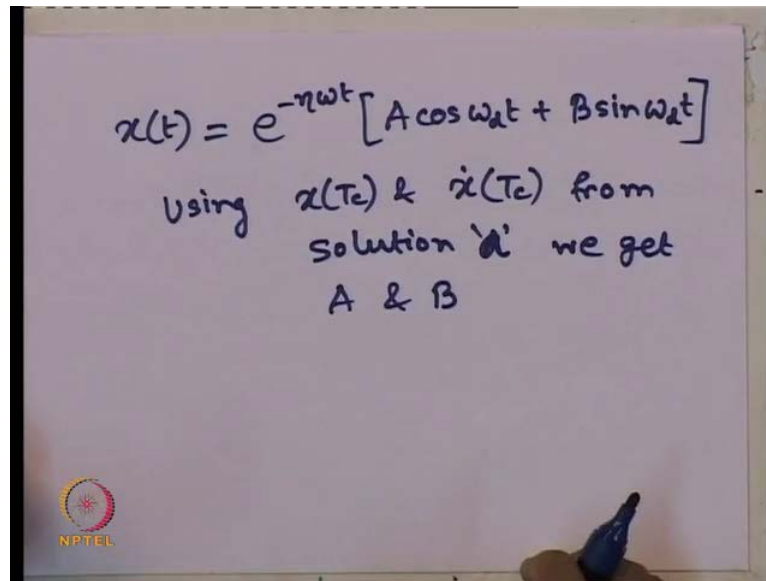 x(t) = e^{-ηωt} [A cos ω_d t + B sin ω_d t]
Using x(T_c) & ẋ(T_c) from
solution 'a' we get
A & B
NPTEL